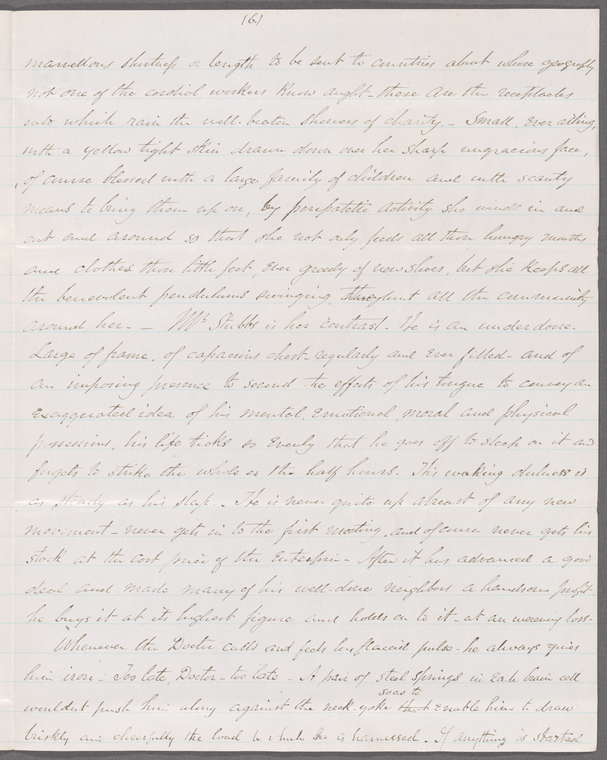 (6)
marvellous shortness or length to be sent to countries about whose geography
not one of the cordial workers know aught - these are the receptacles
into which rain the well-beaten showers of charity. - Small, ever ailing,
with a yellow tight skin drawn down over her sharp ungracious face,
of course blessed with a large family of children and with scanty
means to bring them up on, by peripatetic activity she winds in and
out and around so that she not only feeds all those hungry mouths
and clothes those little feet, ever greedy of new shoes, but she keeps all
the benevolent pendulums swinging throughout all the community
around her. - Mr Stubbs is her contrast. He is an underdone.
Large of frame, of capacious chest regularly and ever filled - and of
an imposing presence to second the efforts of his tongue to convey an
exaggerated idea of his mental, emotional, moral and physical
possessions, his life ticks so evenly that he goes off to sleep on it and
forgets to strike the whole or the half hours. His waking dulness is
as steady as his sleep. He is never quite up abreast of any new
movement - never gets in to the first meeting, and of course never gets his
stock at the cost price of the enterprise - After it has advanced a good
deal and made many of his well-done neighbors a handsome profit -
he buys it at its highest figure and holds on to it - at an unvarying loss.
Whenever the Doctor calls and feels his flaccid pulse - he always gives
him iron - Too late, Doctor - too late - A pair of steel springs in each brain cell
wouldnt push him along against the neck yoke so as to enable him to draw
briskly and cheerfully the load to which he is harnessed. If anything is started